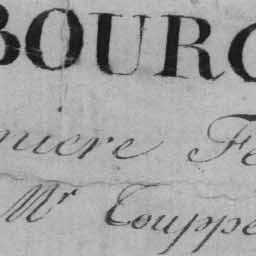 BOURG
niere Fe
Mr Couppe